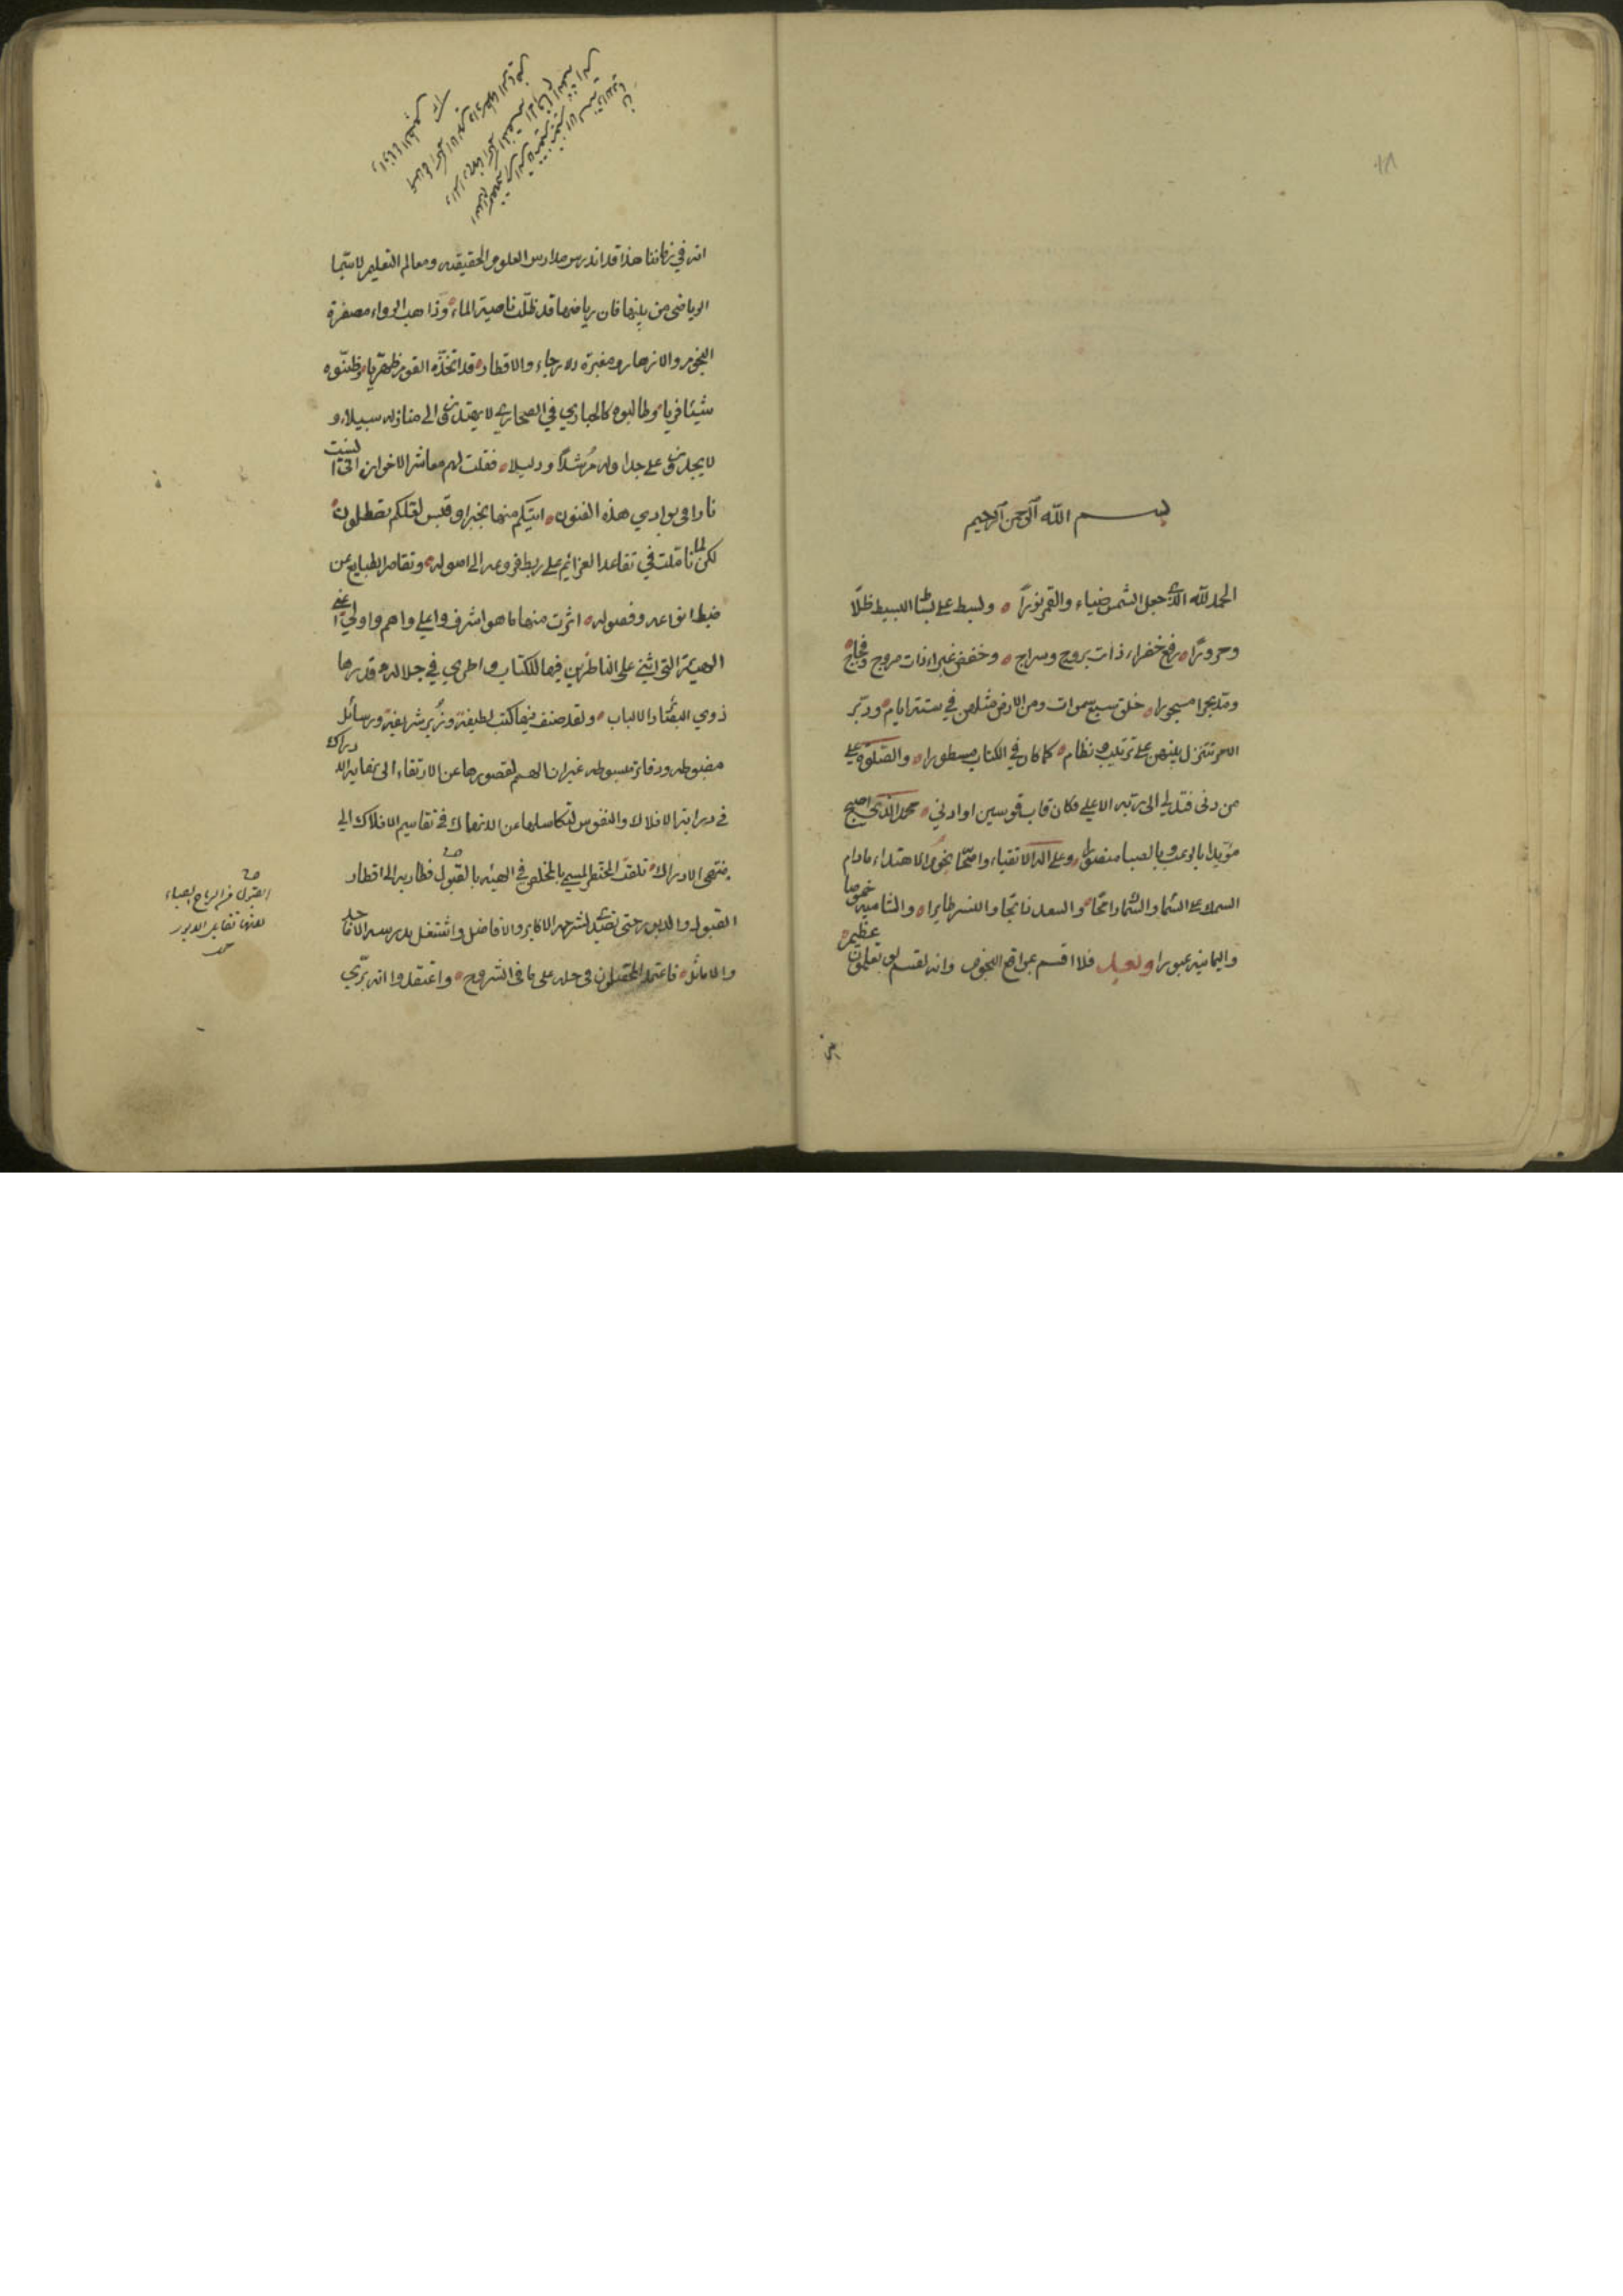 بسم الله الرحمن الرحيم
الحمد لله الذي جعل الشمس ضياء والقمر نورًا ه وبسط على بسا البسيط ظلّا
وحرورًا ه رفع خضراء ذات بروج وسراج ه وخفض غبراء ذات مروج وفجاج
ومدّ بحرا مسجورا ه خلق سبع سموات ومن الارض مثلهن في ستة ايام ه ودبّر
الامر تتنزل بينهن على ترتيب ونظام ه كما كان في الكتاب مسطورا ه والصلوة على
من دنى فتدلى الى ربّه الاعلى فكان قاب قوسين او ادنى ه محمد الذي اصبح
مؤيدا بالرعب وبالصبا منصورا وعلى آله الاتقياء واصحابه نجوم الاهتداء مادام
السماك على السماء والسما رامحًا ه والسعد ذابحًا والنسر طايرا ه والشامية غموصا
واليمانية عبورا وبعد فلا اقسم بمواقع النجوم وانه لقسم لو تعلمون عظيم ه
انه في زماننا هذا قد اندرس مدارس العلوم الحقيقيه ومعالم التعليم لا سيّما
الرياضي من بينها فان رياضها قد ظلّت ناضبة الماء ه وذاهبة الرواء مصفرة
النجوم والازهار ه ومغبرة الارجاء والاقطار ه قد اتخذه القوم ظهريّا وظنّوه
شيئا فريا ه وطالبوه كالحيارى في الصحارى لا يهتدون الى منازله سبيلا ه و
لا يجدون على جداوله مُرشدًا ودليلا ه فقلت لهم معاشر الاخوان اني آنست
نارا في بوادي هذه الفنون ه اتيكم منها بخبر او قبس لعلكم تصطلون ه
لكن لما تأمّلت في تقاعد العزائم على ربط فروعه الى اصوله ه وتقاصر الطبايع عن
ضبط انواعه وفصوله ه اثرت منها ما هو اشرف واعلى واهم واولى اعني
الهيئة التي اثنى على الناظرين فيها الكتاب واطرى في جلالة قدرها
ذوي البصائر والالباب ه ولقد صنف فيها كتب لطيفة وزُبر شريفة ورسائل
مضبوطه ودفاتر مبسوطه غير ان الهمم لقصورها عن الارتقاء الى نهاية الادراك
في دراية الافلاك والنفوس لتكاسلها عن الانهماك في تقاسيم الافلاك الى
منتهى الادراك ه تلقّت المختصر المسمى بالملخص في الهيئه بالقبول فطار به الى اقطار
القبول والدبور حتى تصدّى لشرحه الاكابر والافاضل واشتغل بدرسه الاماجد
والاماثل ه فاعتمد المحصلون في حله على ما في الشروح ه واعتقدوا انه بريّ
القبول من الرياح الصباء
لانها تقابل الدبور